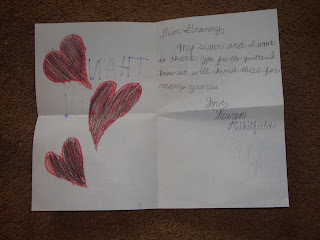 THANK
YOU
Dear Granny,
My sister and I want
to thank you for the quilts. I
know we will cherish these for
many years.
Love,
Lauren
Whitfield